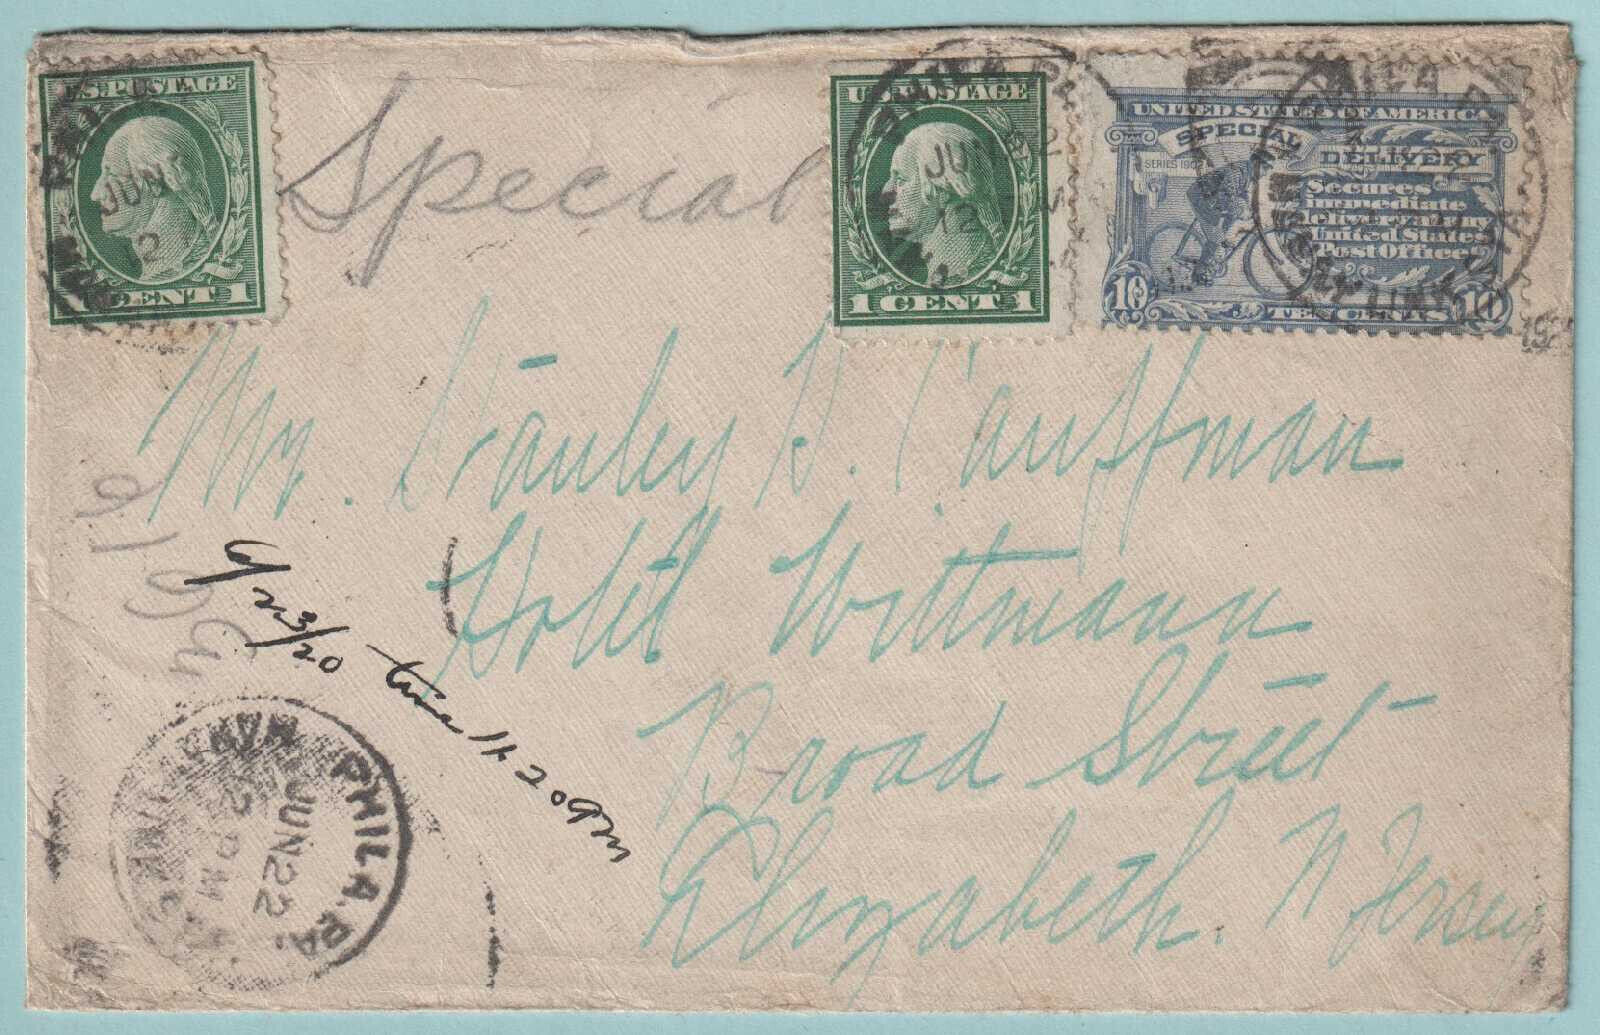 U.S. POSTAGE
CENT 1
Special
U.S. POSTAGE
1 CENT 1
UNITED STATES OF AMERICA
SPECIAL DELIVERY
SERIES 1902
Secures
immediate
delivery at any
United States
Post Office
10 TEN CENTS 10
Mr. Stanley S. Kauffman
Hotel Wittmann
Broad Street
Elizabeth. N Jersey
6/23/20 time 11 20 PM
PHILA. PA.
JUN 22
2 PM